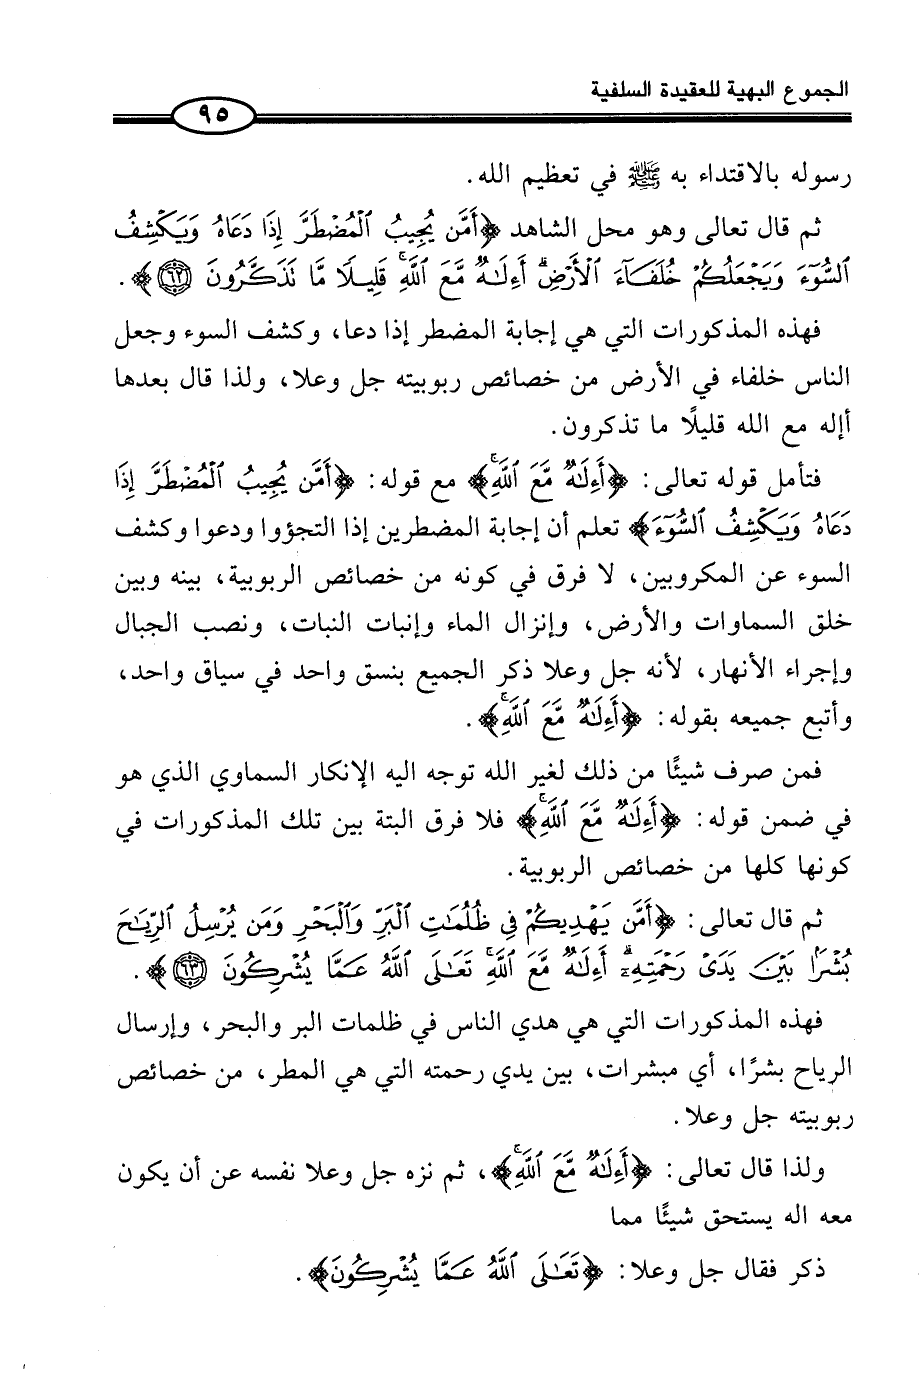 الجموع البهية للعقيدة السلفية
٩٥
رسوله بالاقتداء به ﷺ في تعظيم الله.
ثم قال تعالى وهو محل الشاهد ﴿أَمَّن يُجِيبُ ٱلۡمُضۡطَرَّ إِذَا دَعَاهُ وَيَكۡشِفُ
ٱلسُّوٓءَ وَيَجۡعَلُكُمۡ خُلَفَآءَ ٱلۡأَرۡضِۗ أَءِلَٰهٞ مَّعَ ٱللَّهِۚ قَلِيلٗا مَّا تَذَكَّرُونَ ٦٢﴾.
فهذه المذكورات التي هي إجابة المضطر إذا دعا، وكشف السوء وجعل
الناس خلفاء في الأرض من خصائص ربوبيته جل وعلا، ولذا قال بعدها
أإله مع الله قليلًا ما تذكرون.
فتأمل قوله تعالى: ﴿أَءِلَٰهٞ مَّعَ ٱللَّهِۚ﴾ مع قوله: ﴿أَمَّن يُجِيبُ ٱلۡمُضۡطَرَّ إِذَا
دَعَاهُ وَيَكۡشِفُ ٱلسُّوٓءَ﴾ تعلم أن إجابة المضطرين إذا التجؤوا ودعوا وكشف
السوء عن المكروبين، لا فرق في كونه من خصائص الربوبية، بينه وبين
خلق السماوات والأرض، وإنزال الماء وإنبات النبات، ونصب الجبال
وإجراء الأنهار، لأنه جل وعلا ذكر الجميع بنسق واحد في سياق واحد،
وأتبع جميعه بقوله: ﴿أَءِلَٰهٞ مَّعَ ٱللَّهِۚ﴾.
فمن صرف شيئًا من ذلك لغير الله توجه اليه الإنكار السماوي الذي هو
في ضمن قوله: ﴿أَءِلَٰهٞ مَّعَ ٱللَّهِۚ﴾ فلا فرق البتة بين تلك المذكورات في
كونها كلها من خصائص الربوبية.
ثم قال تعالى: ﴿أَمَّن يَهۡدِيكُمۡ فِي ظُلُمَٰتِ ٱلۡبَرِّ وَٱلۡبَحۡرِ وَمَن يُرۡسِلُ ٱلرِّيَٰحَ
بُشۡرَۢا بَيۡنَ يَدَيۡ رَحۡمَتِهِۦٓۗ أَءِلَٰهٞ مَّعَ ٱللَّهِۚ تَعَٰلَى ٱللَّهُ عَمَّا يُشۡرِكُونَ ٦٣﴾.
فهذه المذكورات التي هي هدي الناس في ظلمات البر والبحر، وإرسال
الرياح بشرًا، أي مبشرات، بين يدي رحمته التي هي المطر، من خصائص
ربوبيته جل وعلا.
ولذا قال تعالى: ﴿أَءِلَٰهٞ مَّعَ ٱللَّهِۚ﴾، ثم نزه جل وعلا نفسه عن أن يكون
معه اله يستحق شيئًا مما
ذكر فقال جل وعلا: ﴿تَعَٰلَى ٱللَّهُ عَمَّا يُشۡرِكُونَ﴾.